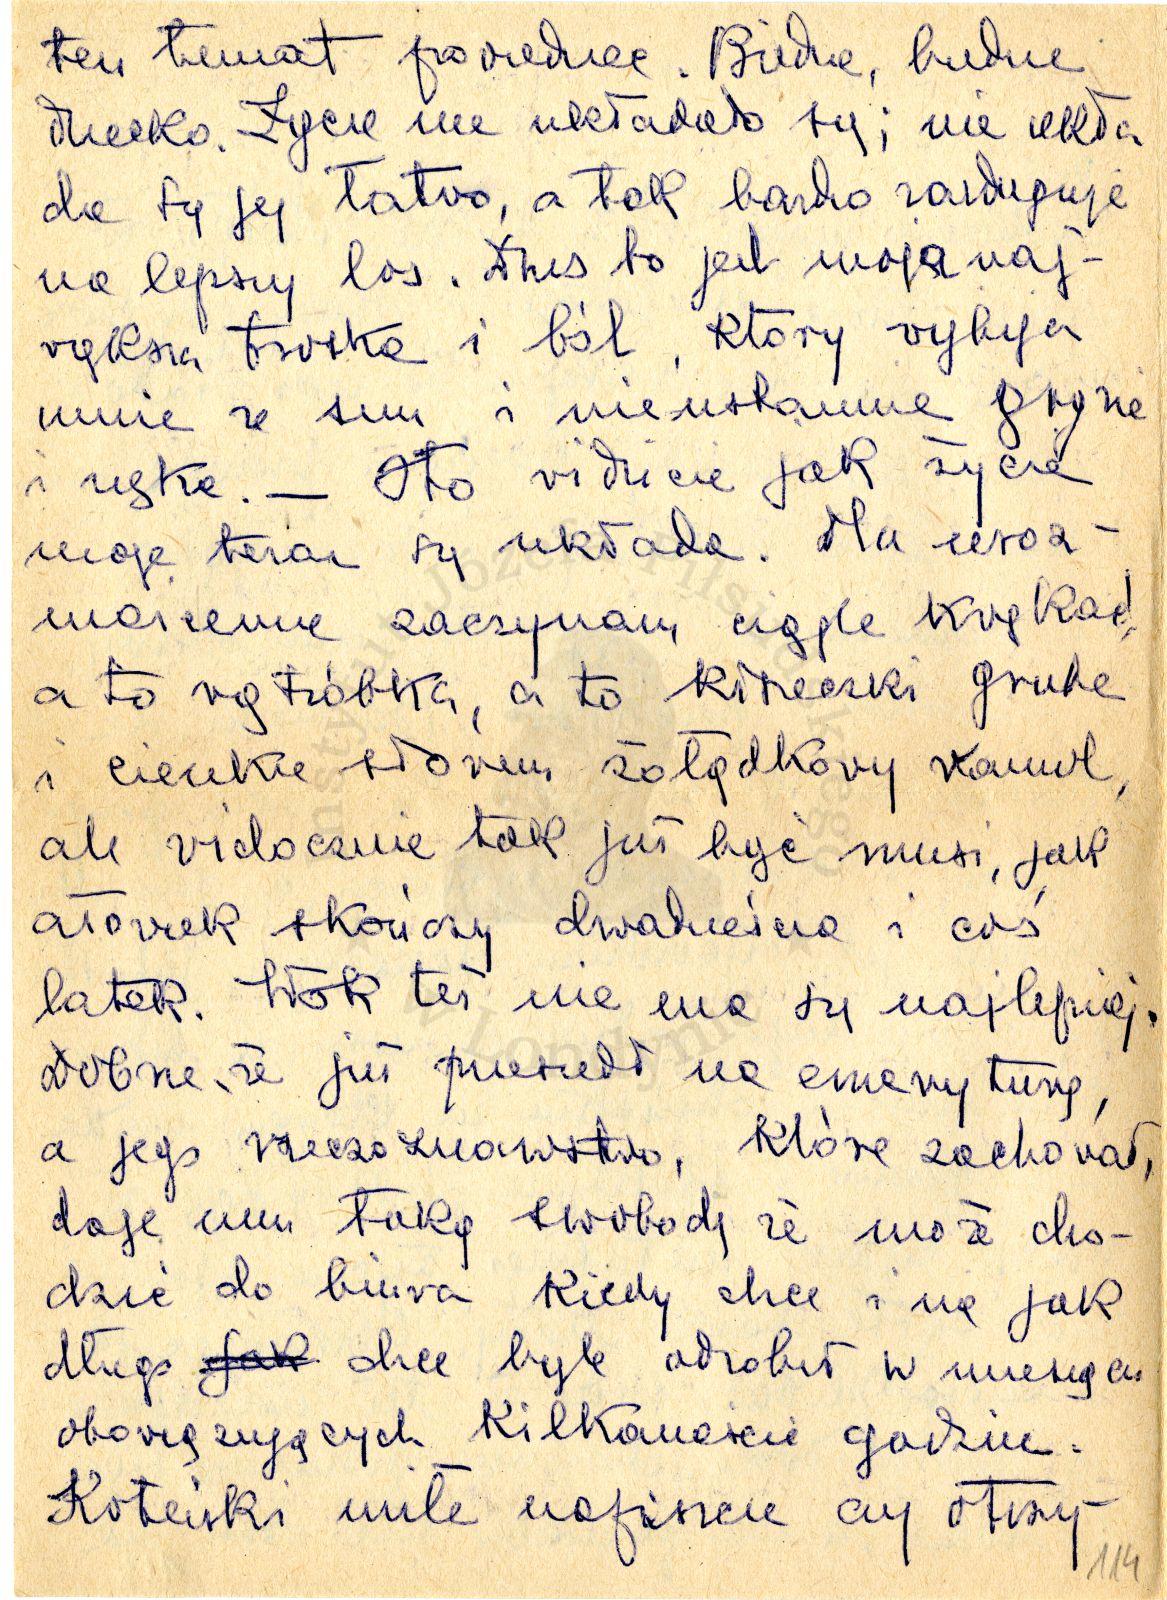 ten temat powiedzieć. Biedne, biedne
dziecko. Życie nie układało się; nie ukła
da się jej łatwo, a tak bardzo zasługuje
na lepszy los. Dziś to jest moja naj-
większa troska i ból, który wybija
mnie ze snu i nieustannie gryzie
i nęka. — Oto widzicie jak życie
moje teraz się układa. Dla uroz-
maicenia zaczynam ciągle kwękać,
a to wątróbka, a to kiszeczki grube
i cienkie słowem żołądkowy kawał,
ale widocznie tak już być musi, jak
człowiek skończy dwadzieścia i coś
latek. Wok też nie ma się najlepiej.
Dobrze, że już przeszedł na emeryturę,
a jego rzeczoznawstwo, które zachował,
daje mu taką swobodę że może cho-
dzić do biura kiedy chce i na jak
długo jak chce byle odrobił w miesiącu
obowiązujących kilkanaście godzin.
Koteńki miłe napiszcie czy otrzy-
114
Instytut Józefa Piłsudskiego
w Londynie